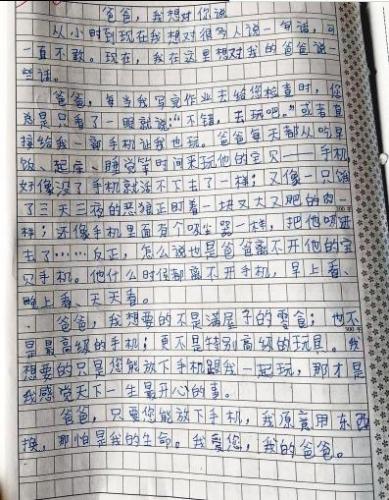 爸爸，我想对你说
从小时到现在我想对很多人说一句话，可
一直不敢。现在，我在这里想对我的爸爸说一
些话。
爸爸，每当我写完作业去给您检查时，你
总是只看了一眼就说："不错，去玩吧。"或者直
接给我一部手机让我也玩。爸爸每天都从吃早
饭、起床、睡觉等时间来玩他的宝贝——手机，
好像没了手机就活不下去了一样；又像一只饿
了三天三夜的恶狼正盯着一块又大又肥的肉
一样；还像手机里面有个吸尘器一样，把他吸进
去了……反正，怎么说也是爸爸离不开他的宝
贝手机。他什么时候都离不开手机，早上看、
晚上看、天天看。
爸爸，我想要的不是满屋子的零食；也不
是最高级的手机；更不是特别高级的玩具。我
想要的只是您能放下手机跟我一起玩，那才是
我感觉天下一生最开心的事。
爸爸，只要您能放下手机，我原意用东西
换，那怕是我的生命。我爱您，我的爸爸。